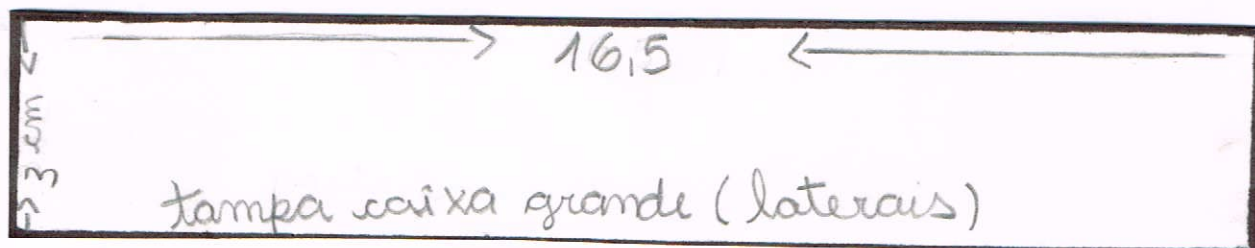 16,5
3 cm
tampa caixa grande (laterais)